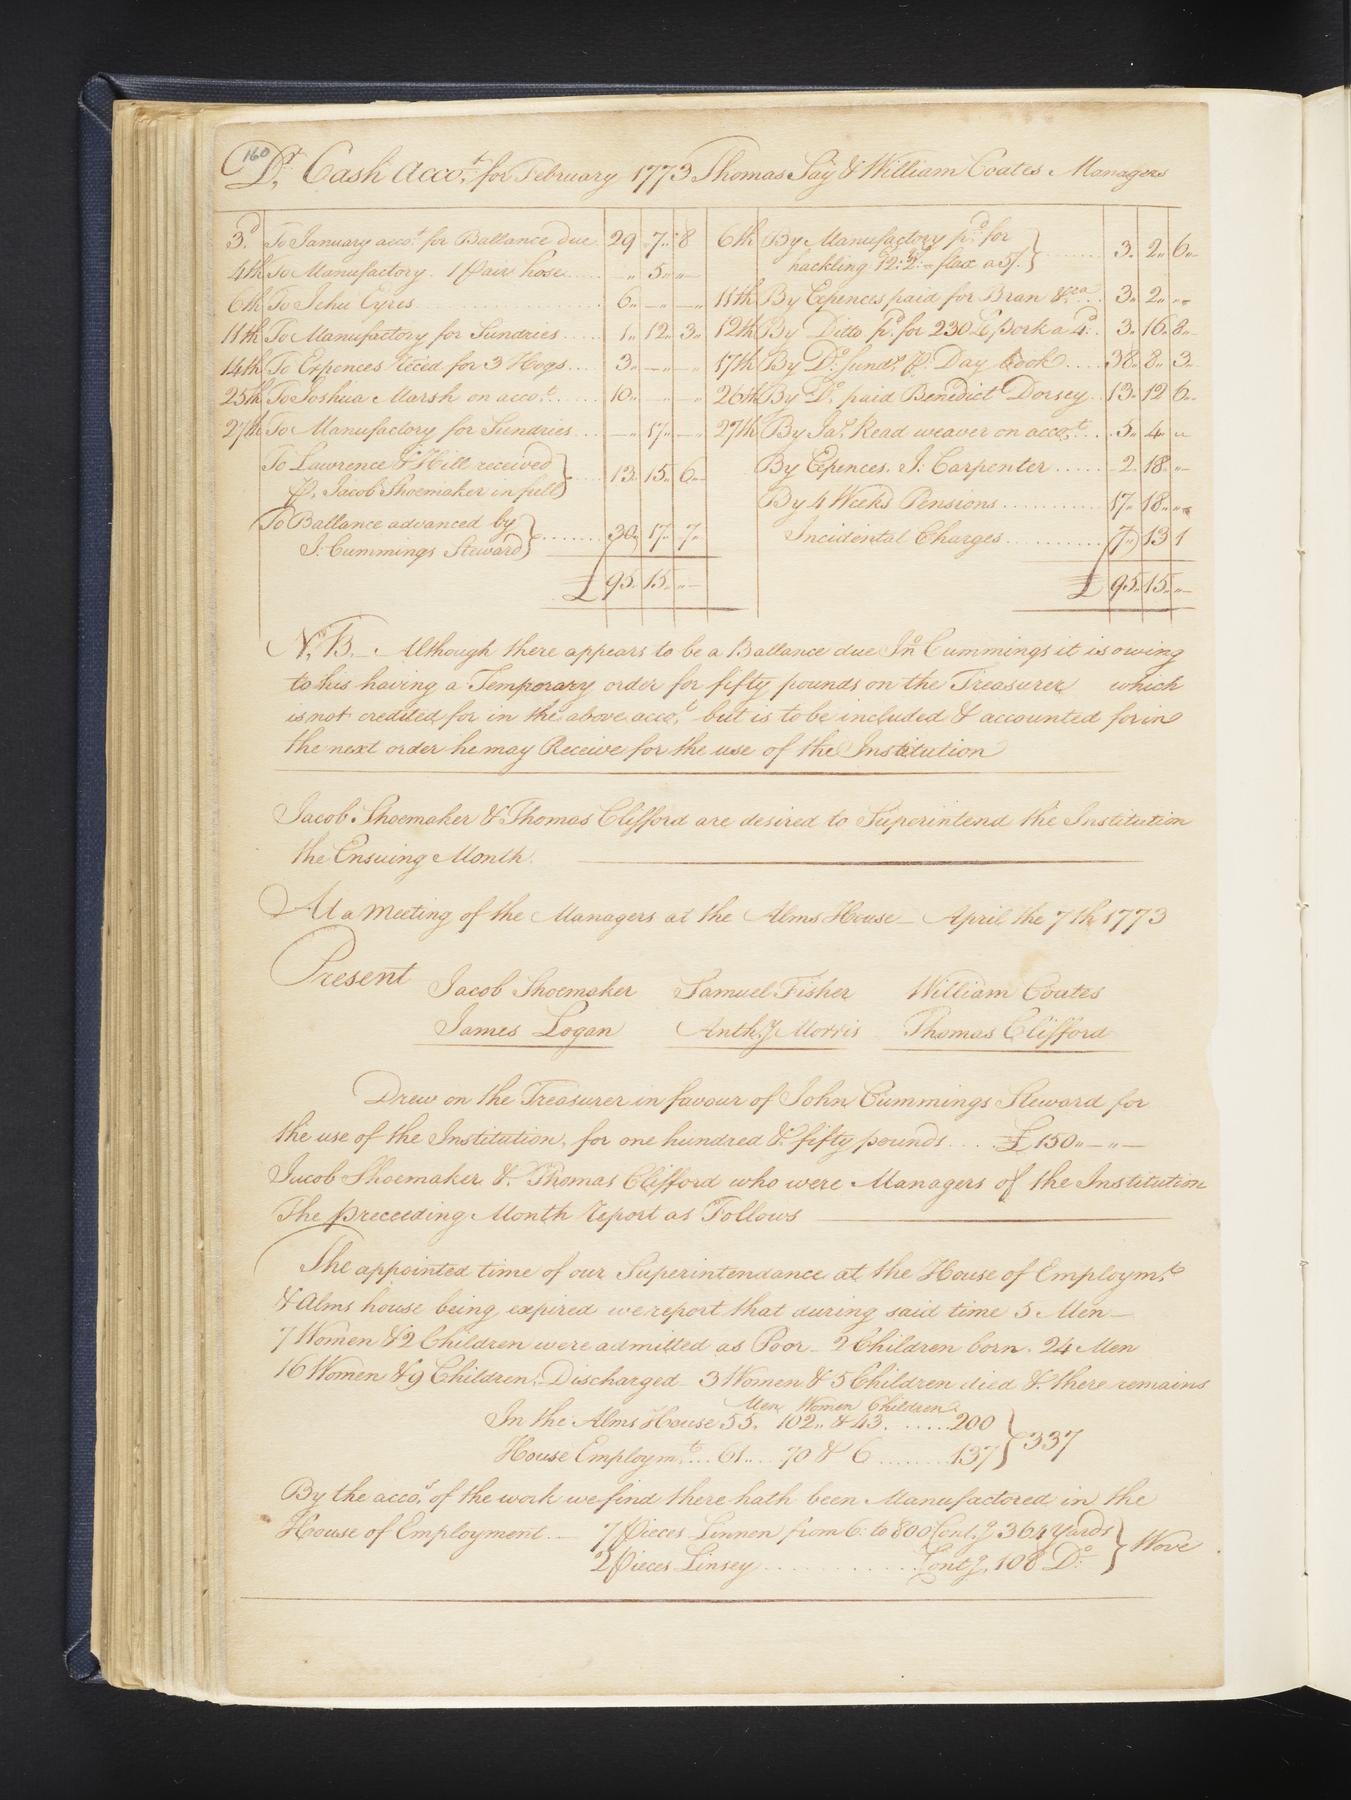 160
Dr. Cash Acco.t for February 1773 Thomas Say & William Coates Managers
3.d To January acco.t for Ballance due 29 7 8
4th To Manufactory 1 pair hose ..... " 5 " —
6th To Jehu Eyres ..... 6 " — " — "
11th To Manufactory for Sundries ..... 1 " 12 3 "
14th To Expences Rec'ed for 3 Hogs ... 3 " — " — "
25th To Joshua Marsh on acco.t ..... 10 " — " — "
27th To Manufactory for Sundries ... — " 17 " — "
To Lawrence & Hill received
p. Jacob Shoemaker in full } ..... 13 15 6
To Ballance advanced by
J: Cummings Steward } ....... 30 17 7
£ 95 15 " —
6th By Manufactory p.d for
hackling flax a 5/. } ....... 3 2 6
11th By Expences paid for Bran &ca ... 3 2 "
12th By Ditto p.d for 230 lb pork a 4.d 3 16 8
17th By D.o sund.s p. Day Book .... 38 8 3
26th By D.o paid Benedict Dorsey .. 13 12 6
27th By Ja.s Read weaver on acco.t ... 5 4 "
By Expences. J: Carpenter ..... 2 18 " —
By 4 Weeks Pensions ........... 17 18 "
Incidental Charges ........... 7 13 1
£ 95 15 " —
N.B. Although there appears to be a Ballance due Jn.o Cummings it is owing
to his having a Temporary order for fifty pounds on the Treasurer which
is not credited for in the above acco.t but is to be included & accounted for in
the next order he may Receive for the use of the Institution
Jacob Shoemaker & Thomas Clifford are desired to Superintend the Institution
the Ensuing Month.
At a Meeting of the Managers at the Alms House — April the 7th 1773
Present Jacob Shoemaker Samuel Fisher William Coates
James Logan Anth.y Morris Thomas Clifford
Drew on the Treasurer in favour of John Cummings Steward for
the use of the Institution, for one hundred & fifty pounds ... £150 " — " —
Jacob Shoemaker & Thomas Clifford who were Managers of the Institution
The preceeding Month report as Follows
The appointed time of our Superintendance at the House of Employm.t
& Alms house being expired we report that during said time 5 Men —
7 Women & 2 Children were admitted as Poor — 2 Children born. 24 Men
16 Women & 9 Children, Discharged 3 Women & 5 Children died & there remains
Men Women Children
In the Alms House 55. 102 " & 43. ..... 200
House Employm.t ... 61 .... 70 & 6 ....... 137 } 337
By the acco.t of the work we find there hath been Manufactored in the
House of Employment. — 7 pieces Linnen from 6: to 800 Cont.g 364 Yards
2 pieces Linsey ............ Cont.g 108 D.o } Wove